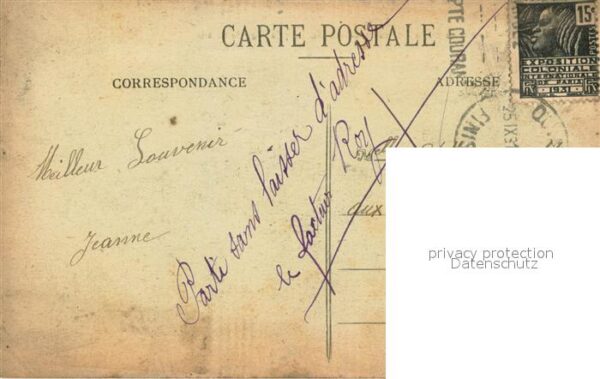 CARTE POSTALE
CORRESPONDANCE
ADRESSE
Meilleur Souvenir
Jeanne
Partie sans laisser d'adresse
le facteur
Roy
aux
15c
EXPOSITION
COLONIALE
INTERNATIONALE
PARIS 1931
FINIS
25 IX
privacy protection
Datenschutz